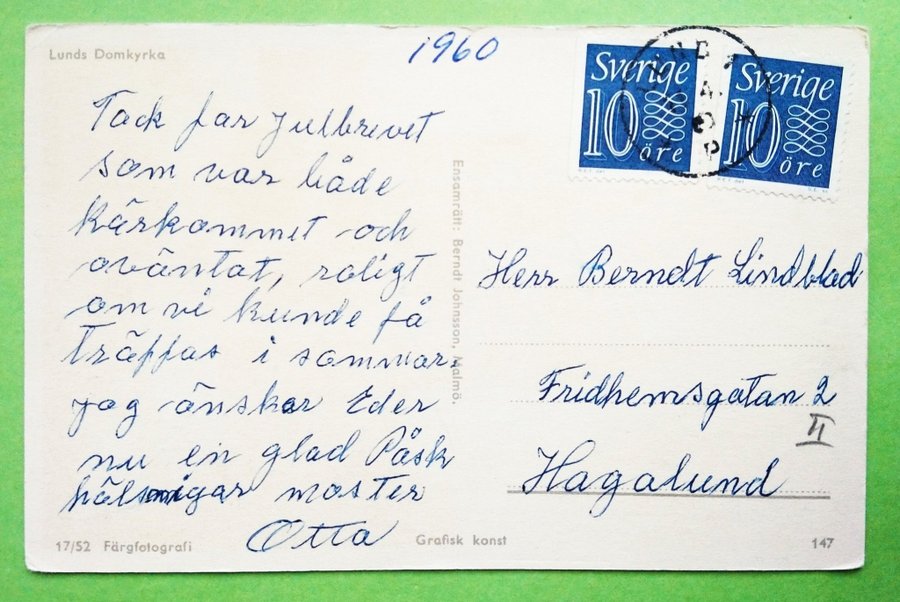 Lunds Domkyrka
1960
Tack för julbrevet
som var både
kärkommet och
oväntat, roligt
om vi kunde få
träffas i sommar,
jag önskar Eder
nu en glad Påsk
hälsningar moster
Otta
17/52 Färgfotografi
Ensamrätt: Berndt Johnsson, Malmö.
Grafisk konst
147
Sverige
10 öre
Sverige
10 öre
Herr Berndt Lindblad
Fridhemsgatan 2
II
Hagalund